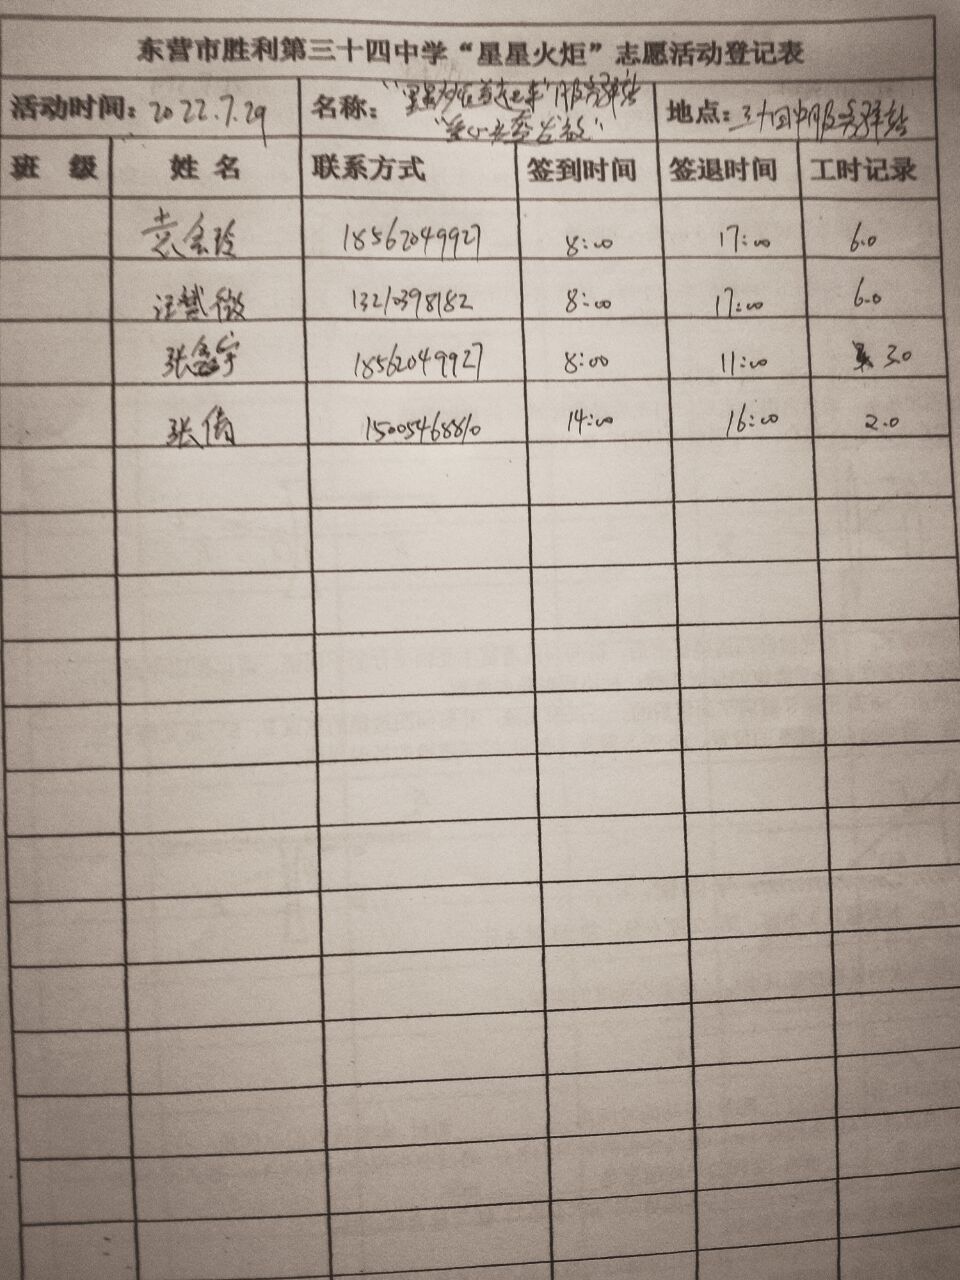 东营市胜利第三十四中学“星星火炬”志愿活动登记表
活动时间：2022.7.29 名称： 地点：三十四中服务驿站
班 级 姓 名 联系方式 签到时间 签退时间 工时记录
袁会玲 18562049927 8:00 17:00 6.0
汪梦微 1321398182 8:00 17:00 6.0
张鑫宇 18562049927 8:00 11:00 3.0
张倩 15005468810 14:00 16:00 2.0